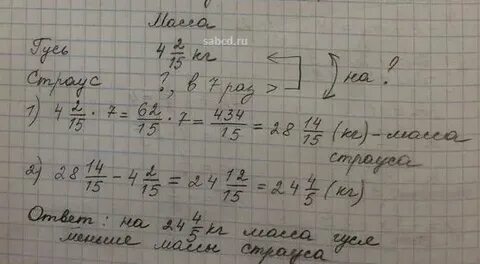 Масса
sabcd.ru
Гусь 4 2/15 кг
Страус ?, в 7 раз > на ?
1) 4 2/15 · 7 = 62/15 · 7 = 434/15 = 28 14/15 (кг) – масса
страуса
2) 28 14/15 – 4 2/15 = 24 12/15 = 24 4/5 (кг)
Ответ: на 24 4/5 кг масса гуся
меньше массы страуса